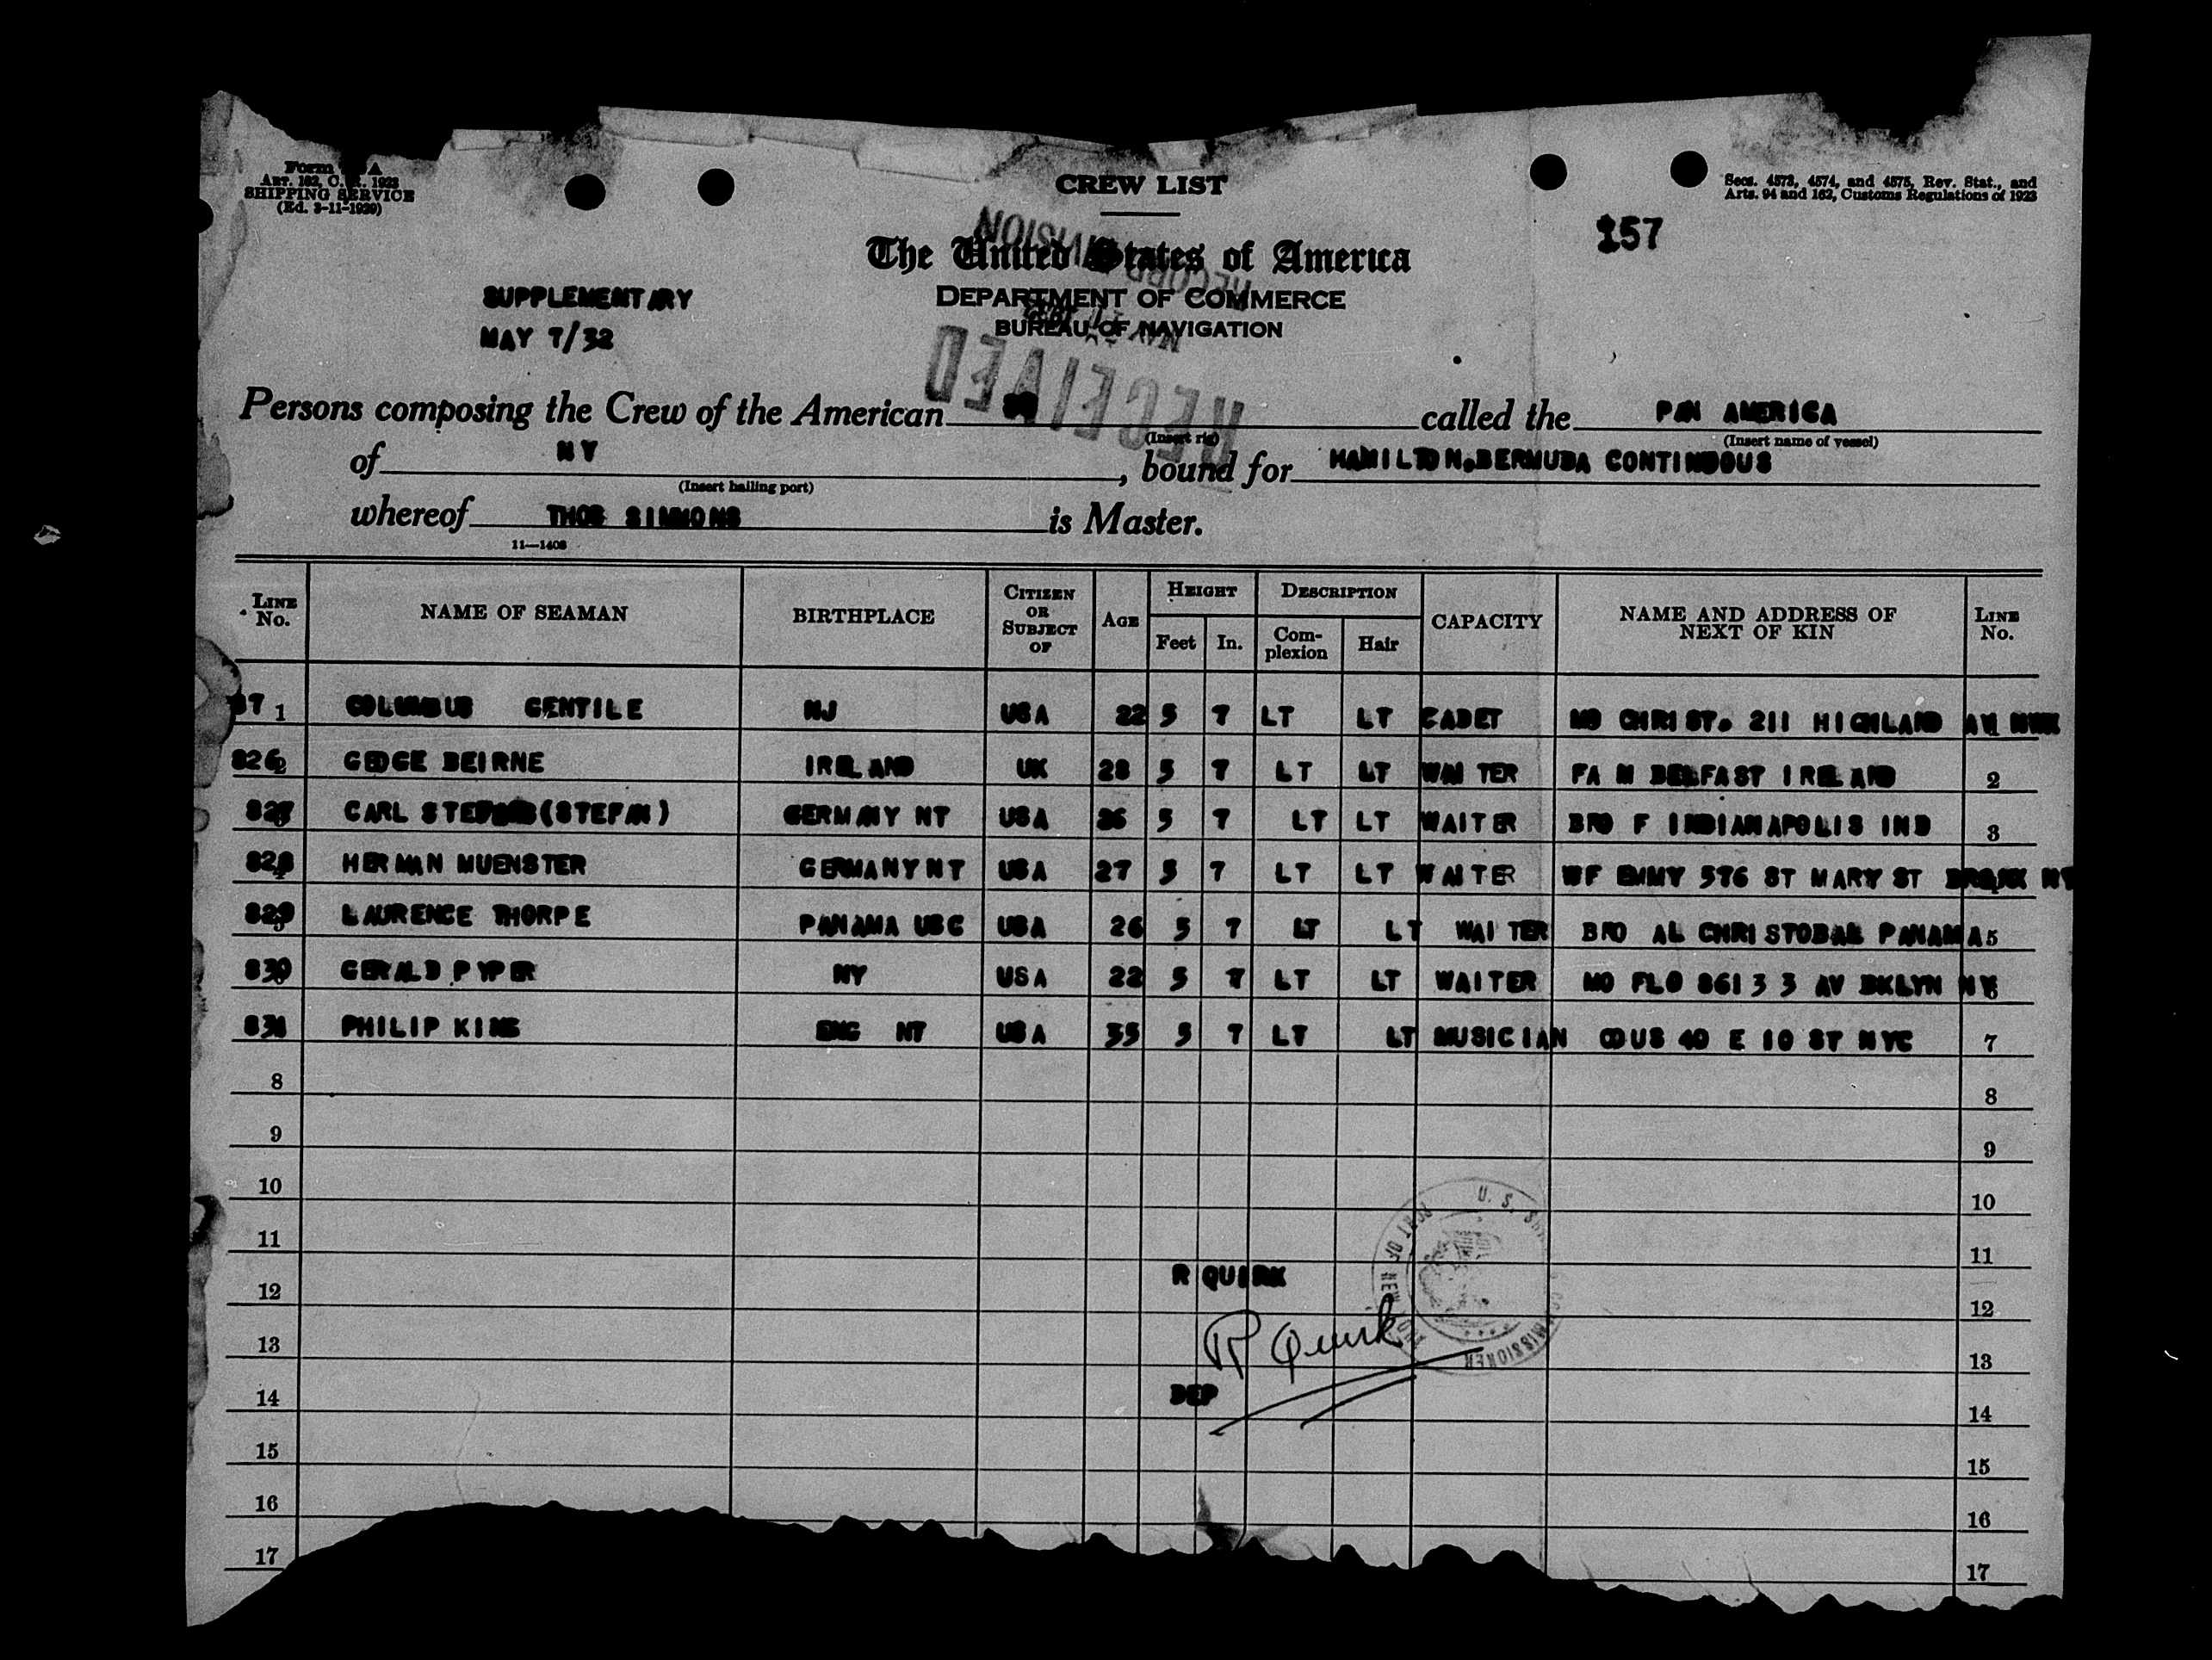 CREW LIST
Form A
ART. 162, C. R. 1923
SHIPPING SERVICE
(Ed. 3-11-1929)
Secs. 4573, 4574, and 4575, Rev. Stat., and
Arts. 94 and 162, Customs Regulations of 1923
157
The United States of America
DEPARTMENT OF COMMERCE
BUREAU OF NAVIGATION
SUPPLEMENTARY
MAY 7/32
RECORD DIVISION
MAY
RECEIVED
Persons composing the Crew of the American called the PAN AMERICA
(Insert rig) (Insert name of vessel)
of NY, bound for HAMILTON,BERMUDA CONTINUOUS
(Insert hailing port)
whereof THOS SIMMONS is Master.
11—1408
LINE No. NAME OF SEAMAN BIRTHPLACE CITIZEN OR SUBJECT OF AGE HEIGHT Feet In. DESCRIPTION Complexion Hair CAPACITY NAME AND ADDRESS OF NEXT OF KIN LINE No.
1 COLUMBUS GENTILE NJ USA 22 5 7 LT LT CADET MO CHRIST. 211 HIGHLAND AV NWK 1
826 2 GEOGE BEIRNE IRELAND UK 28 5 7 LT LT WAITER FA M BELFAST IRELAND 2
827 CARL (STEFAN) GERMANY NT USA 5 7 LT LT WAITER BRO F INDIANAPOLIS IND 3
828 HERMAN MUENSTER GERMANY NT USA 27 5 7 LT LT WAITER WF EMMY 576 ST MARY ST BRONX NY
829 LAURENCE THORPE PANAMA USC USA 26 5 7 LT LT WAITER BRO AL CHRISTOBAL PANAMA 5
830 GERALD PYPER NY USA 22 5 7 LT LT WAITER MO FLO 8613 3 AV BKLYN NY 6
831 PHILIP KING ENG NT USA 35 5 7 LT LT MUSICIAN COUS 40 E 10 ST NYC 7
8 8
9 9
10 10
11 11
12 12
13 13
14 14
15 15
16 16
17 17
R QUIRK
R Quirk
DEP
U. S. COMMISSIONER PORT OF NEW YORK